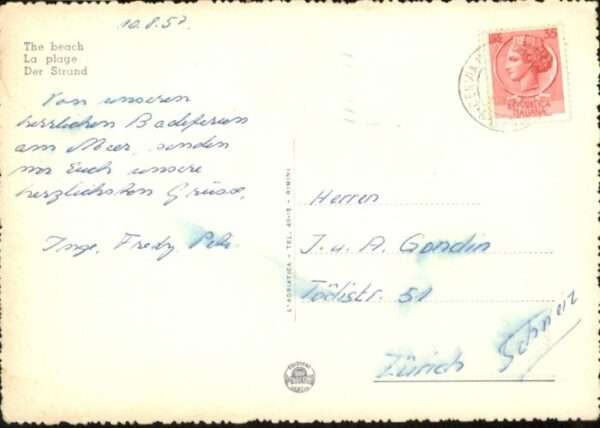 10.8.57.
The beach
La plage
Der Strand
Von unseren
herrlichen Badeferien
am Meer, senden
wir Euch unsere
herzlichsten Grüsse,
Inge, Fredy
LIRE 35
REPVBBLICA
ITALIANA
L'ADRIATICA - TEL. - RIMINI
Herren
J. u. A. Gondin
Tödistr. 51
Zürich Schweiz